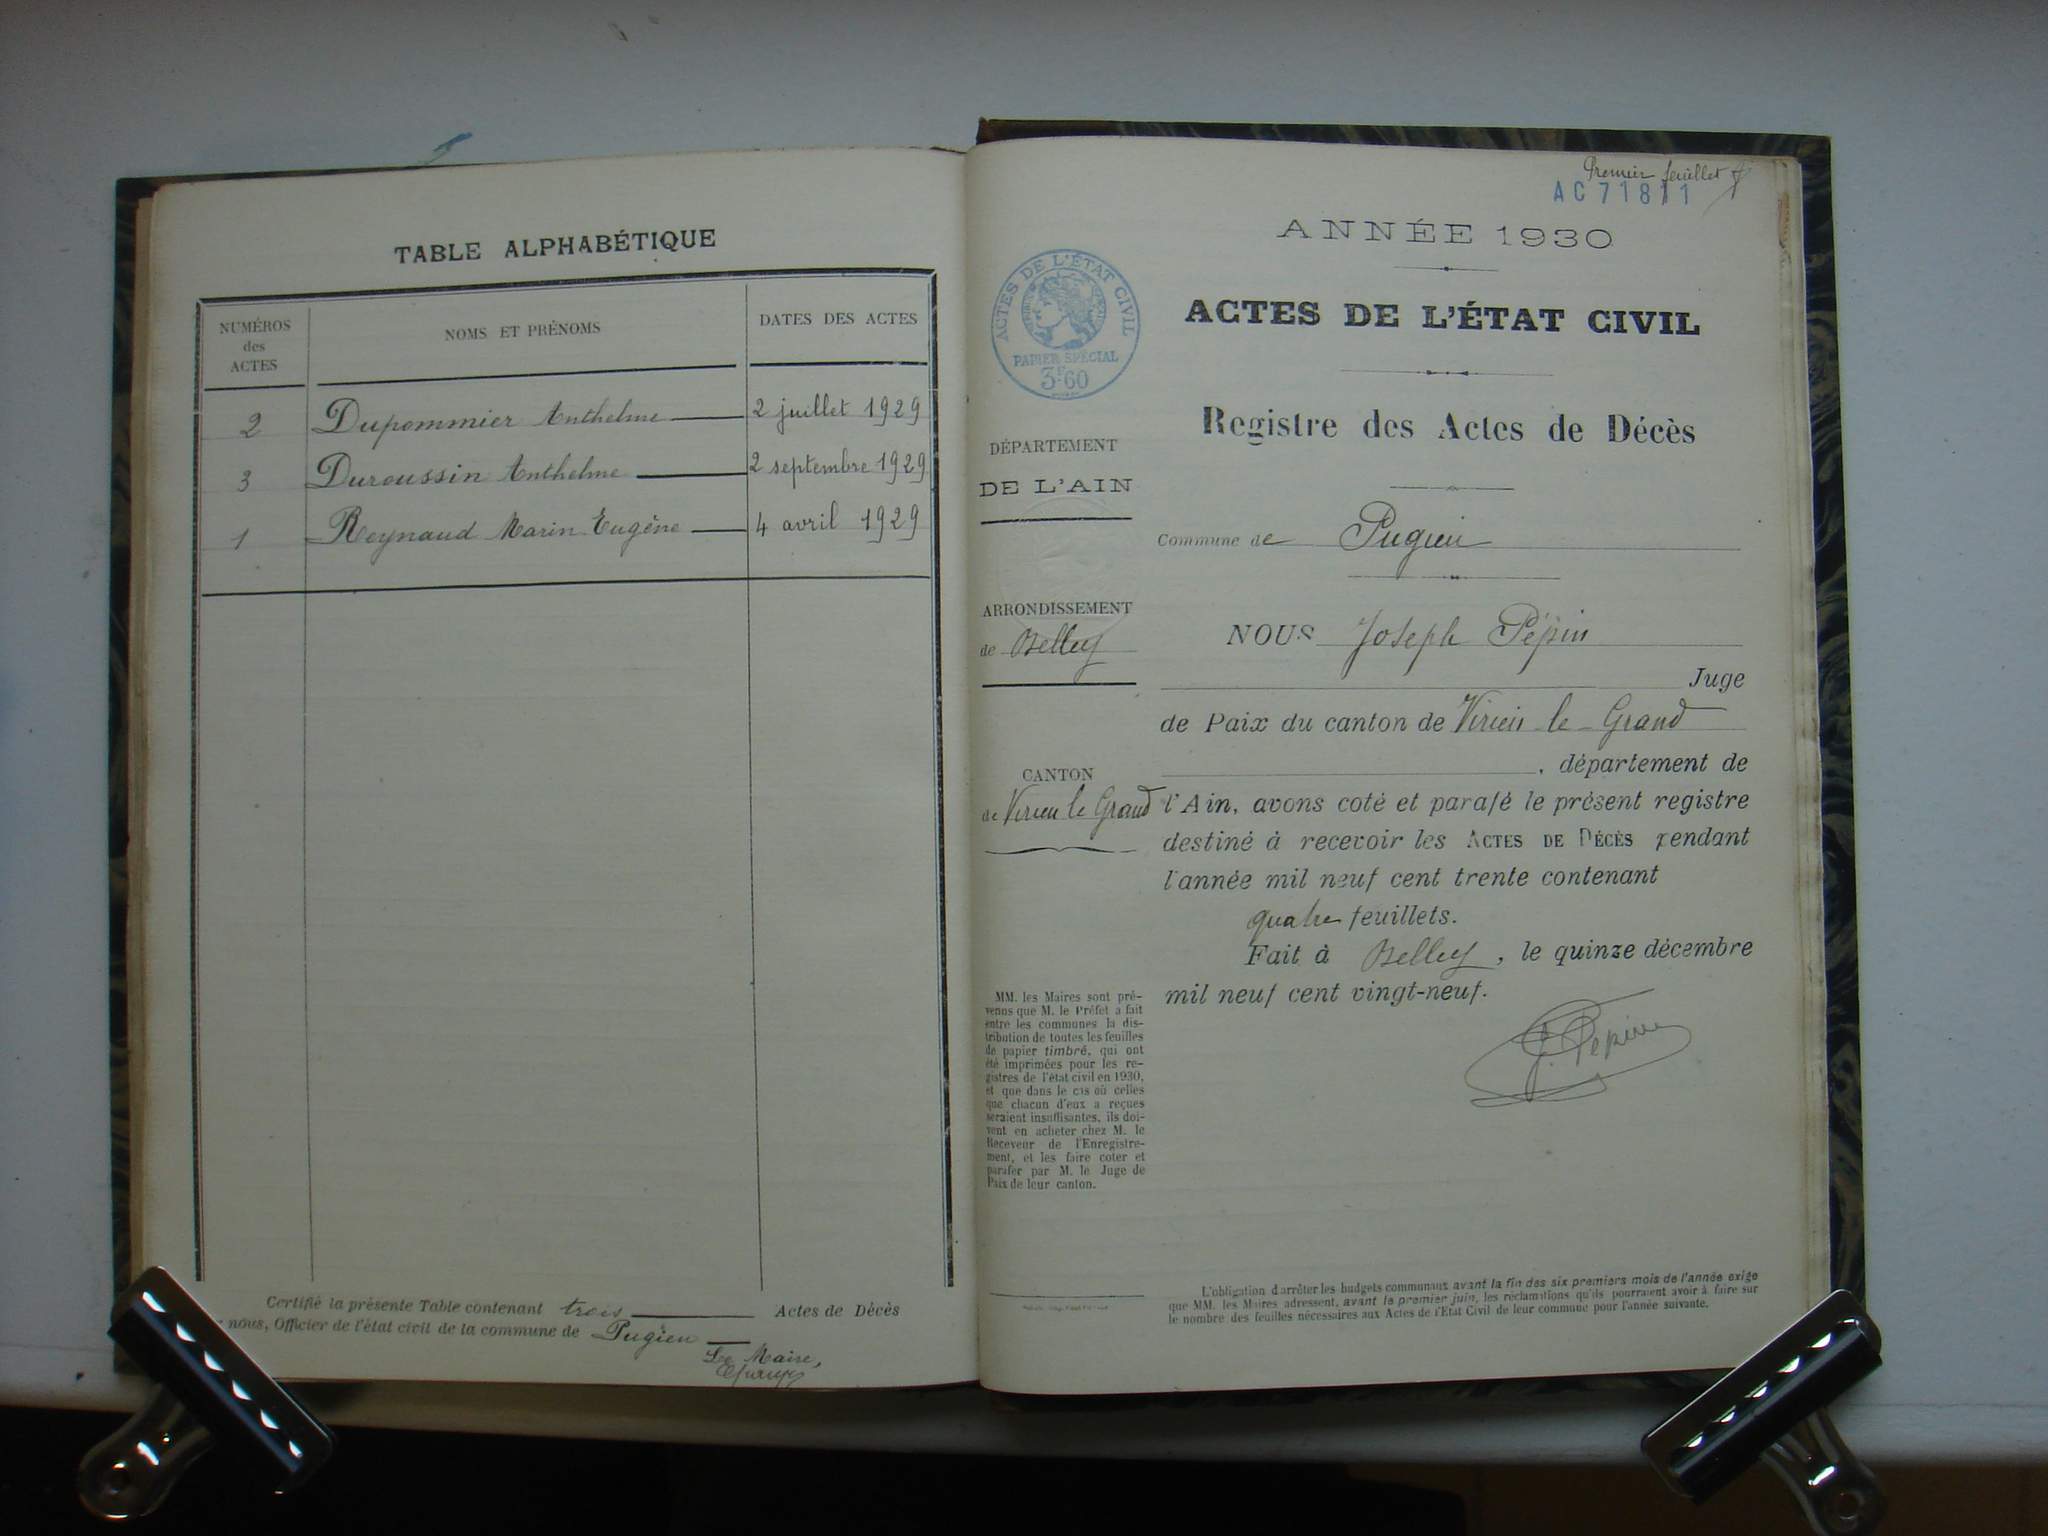 TABLE ALPHABÉTIQUE
NUMÉROS
des
ACTES
NOMS ET PRÉNOMS
DATES DES ACTES
2 Dupommier Anthelme 2 juillet 1929
3 Duroussin Anthelme 2 septembre 1929
1 Reynaud Marin Eugène 4 avril 1929
Certifié la présente Table contenant trois Actes de Décès
nous, Officier de l'état civil de la commune de Pugieu
Le Maire,
Premier feuillet
AC 71811
ANNÉE 1930
ACTES DE L'ÉTAT CIVIL
PAPIER SPÉCIAL
3F60
ACTES DE L'ÉTAT CIVIL
Registre des Actes de Décès
DÉPARTEMENT
DE L'AIN
Commune de Pugieu
ARRONDISSEMENT
de Belley
CANTON
de Virieu le Grand
NOUS Joseph Pépin
Juge
de Paix du canton de Virieu le Grand
, département de
l'Ain, avons coté et parafé le présent registre
destiné à recevoir les ACTES DE DÉCÈS pendant
l'année mil neuf cent trente contenant
quatre feuillets.
Fait à Belley, le quinze décembre
mil neuf cent vingt-neuf.
J. Pépin
MM. les Maires sont pré-
venus que M. le Préfet a fait
entre les communes la dis-
tribution de toutes les feuilles
de papier timbré, qui ont
été imprimées pour les re-
gistres de l'état civil en 1930,
et que dans le cas où celles
que chacun d'eux a reçues
seraient insuffisantes, ils doi-
vent en acheter chez M. le
Receveur de l'Enregistre-
ment, et les faire coter et
parafer par M. le Juge de
Paix de leur canton.
L'obligation d'arrêter les budgets communaux avant la fin des six premiers mois de l'année exige
que MM. les Maires adressent, avant le premier juin, les réclamations qu'ils pourraient avoir à faire sur
le nombre des feuilles nécessaires aux Actes de l'Etat Civil de leur commune pour l'année suivante.